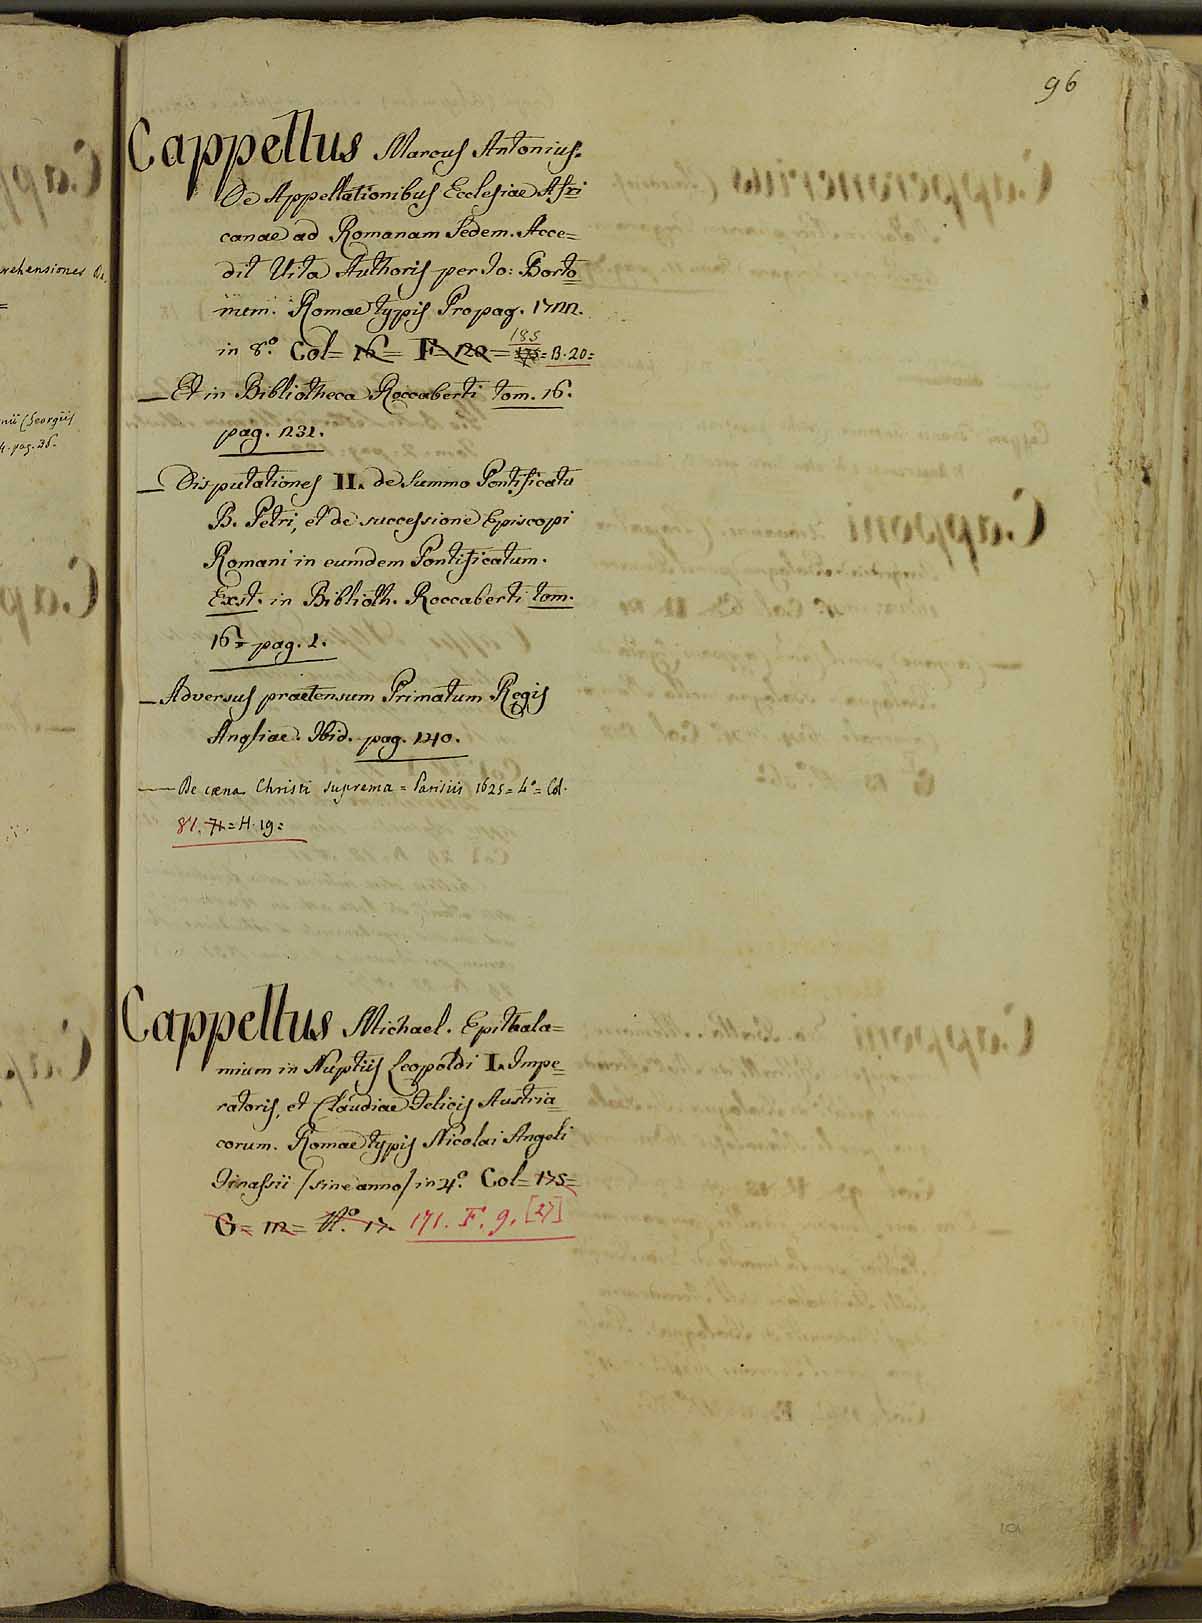 96
Cappellus Marcus Antonius.
De Appellationibus Ecclesiae Afri
canae ad Romanam Sedem. Acce=
dit Vita Authoris per Io: Borto
Romae typis Propag. 1722.
in 8.º Col= 16= F= 120= 185 175= B. 20=
— Et in Bibliotheca Roccaberti tom. 16.
pag. 1231.
— Disputationes II. de Summo Pontificatu
B. Petri, et de successione Episcopi
Romani in eumdem Pontificatum.
Exst. in Biblioth. Roccaberti tom.
16. pag. 1.
— Adversus praetensum Primatum Regis
Angliae. Ibid. pag. 140.
— De cæna Christi suprema = Parisiis 1625 = 4º = Col.
81. 71 = H. 19 =
Cappellus Michael. Epithala=
mium in Nuptiis Leopoldi I. Impe=
ratoris, et Claudiae Felicis Austria=
corum. Romae typis Nicolai Angeli
Tinassii /sine anno/ in 4.º Col= 175=
G= 12= Nº. 17. 171. F. 9. [27]
rehensiones
nii Georgii
4. pag. 36.
101